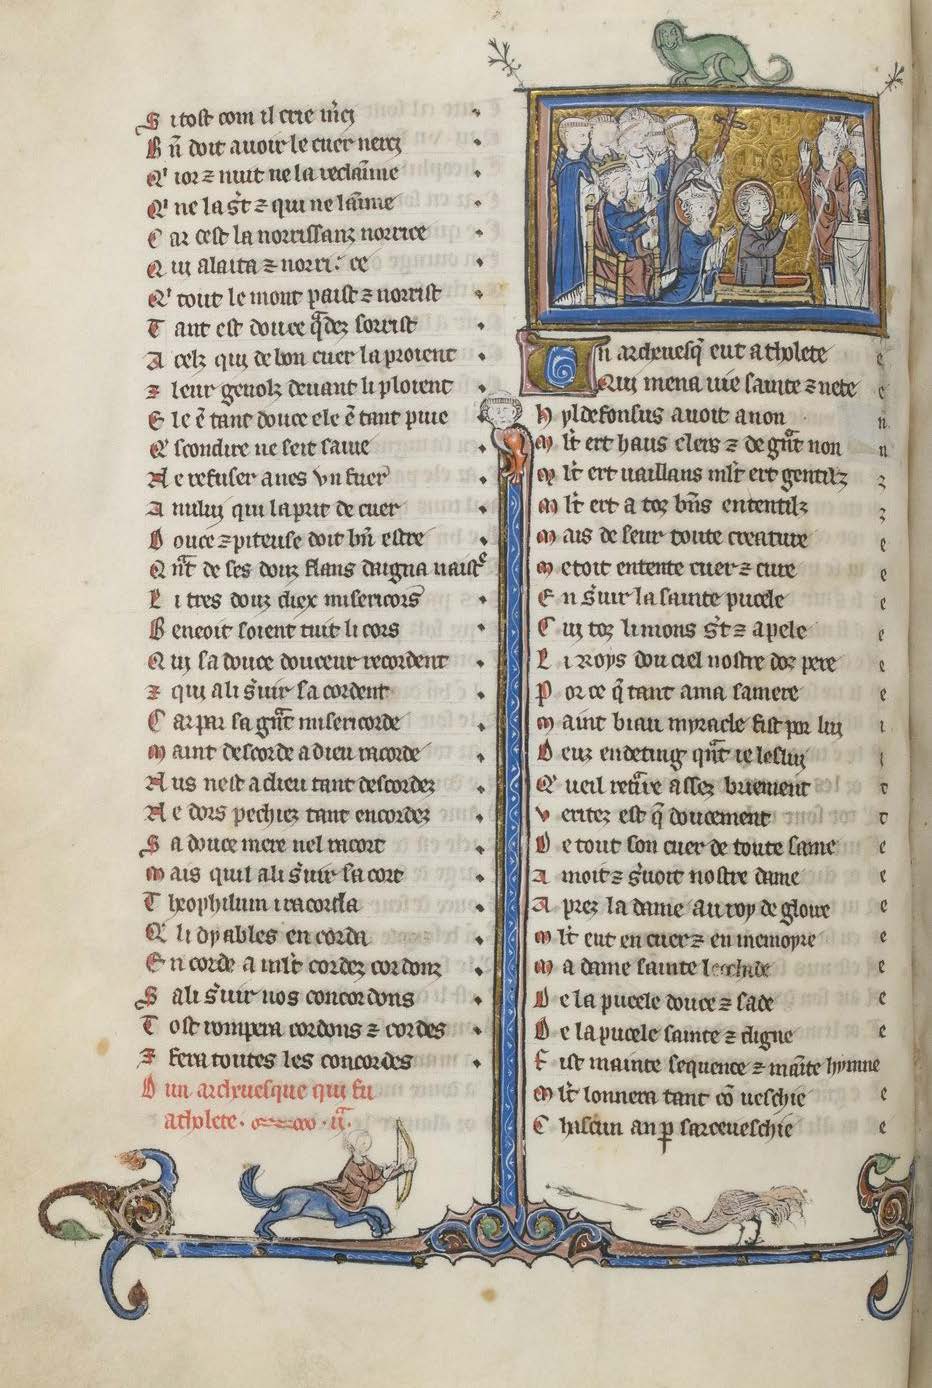 S i tost com il crie m̃ci
B ñ doit auoir le cuer nerci
Q' ior ⁊ nuit ne la reclaĩme
Q' ne la s̃t ⁊ qui ne laĩme
C ar cest la norrissanz norrice
Q ui alaita ⁊ norri
Q' tout le mont paist ⁊ norrist
T ant est douce q̃dez sorrist
A celz qui de bon cuer la proient
⁊ leur genolz deuant li ploient
E le ẽ tant douce ele ẽ tant piue
Q' scondire ne seit saiue
N e refuser aues vn fuer
A nului qui la prit de cuer
D ouce ⁊ piteuse doit bñ estre
Q ñt de ses douz flans daigna naistᵉ
L i tres douz diex misericors
B eneoit soient tuit li cors
Q ui sa douce douceur recordent
⁊ qui a li s̃uir sa cordent
C ar par sa gñt misericorde
M aint descorde a dieu racorde
N us nest a dieu tant descordez
N e dors pechiez tant encordez
S a douce mere nel racort
M ais quil a li s̃uir sa cort
T heophilum i racorda
Q' li dyables en corda
E n corde a ml̃t cordez cordonz
S a li s̃uir nos concordons
T ost rompera cordons ⁊ cordes
⁊ fera toutes les concordes
D un archeuesque qui fu
a tholete.
U n archeuesq̃ eut a tholete
Qui mena uie sainte ⁊ nete
H yldefonsus auoit a non
M l̃t ert haus clers ⁊ de gñt non
M l̃t ert uaillans ml̃t ert gentilz
M l̃t ert a toz bñs ententilz
M ais de seur toute creature
M etoit entente cuer ⁊ cure
E n s̃uir la sainte pucele
C ui toz li mons s̃t ⁊ apele
L i roys dou ciel nostre doz pere
P or ce q̃ tant ama sa mere
M aint biau myracle fist por lui
D euz en deting qñt ie le lui
Q' ueil ret̃ire assez briement
V eritez est q̃ doucement
D e tout son cuer de toute same
A moit ⁊ s̃uoit nostre dame
A prez la dame au roy de gloire
M l̃t eut en cuer ⁊ en memoyre
M a dame sainte
D e la pucele douce ⁊ sade
D e la pucele sainte ⁊ digne
F ist mainte sequence ⁊ maĩte hymne
M l̃t lonnera tant cõ ueschie
C hascun an p̱ sarceueschie